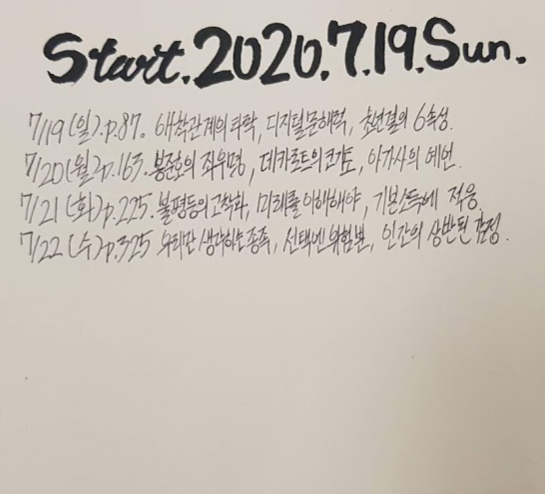 Start.2020.7.19.Sun.
7/19(일).p.87. 타락, 디지털문해력, 초연결의 6속성.
7/20(월)p.163. 봉준호의 좌우명, 데카르트의 코기토, 아가사의 예언.
7/21(화)p.225. 불평등의 고착화, 미래를 이해해야, 기본소득에 적응.
7/22(수)p.325 우리만 생각하는 종족, 선택엔 위험뿐, 인간의 상반된 감정.